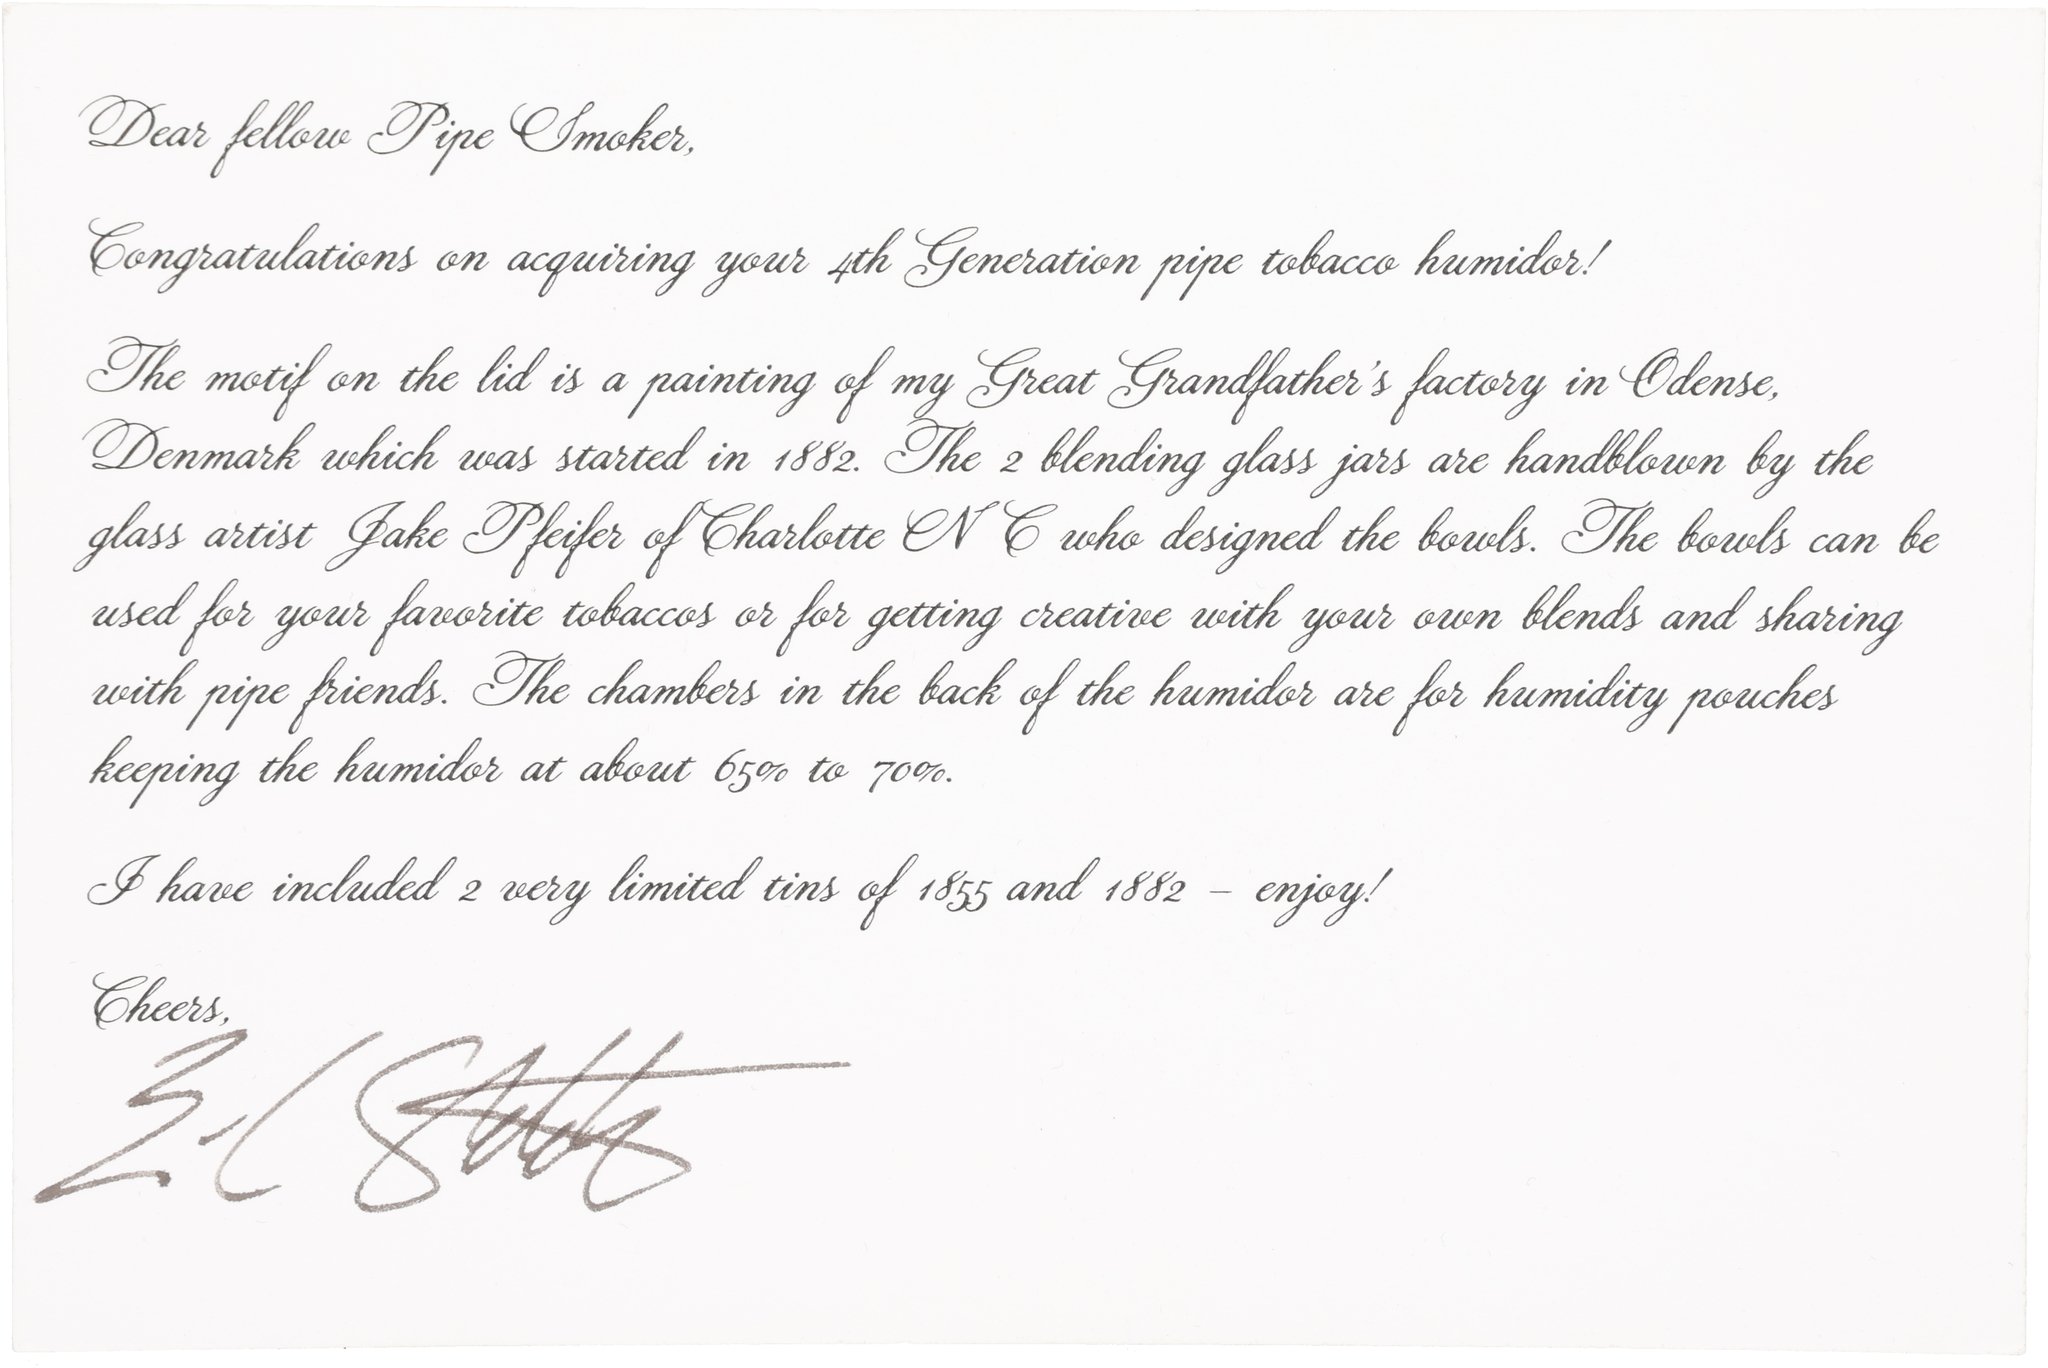 Dear fellow Pipe Smoker,
Congratulations on acquiring your 4th Generation pipe tobacco humidor!
The motif on the lid is a painting of my Great Grandfather's factory in Odense,
Denmark which was started in 1882. The 2 blending glass jars are handblown by the
glass artist Jake Pfeifer of Charlotte N C who designed the bowls. The bowls can be
used for your favorite tobaccos or for getting creative with your own blends and sharing
with pipe friends. The chambers in the back of the humidor are for humidity pouches
keeping the humidor at about 65% to 70%.
I have included 2 very limited tins of 1855 and 1882 – enjoy!
Cheers,